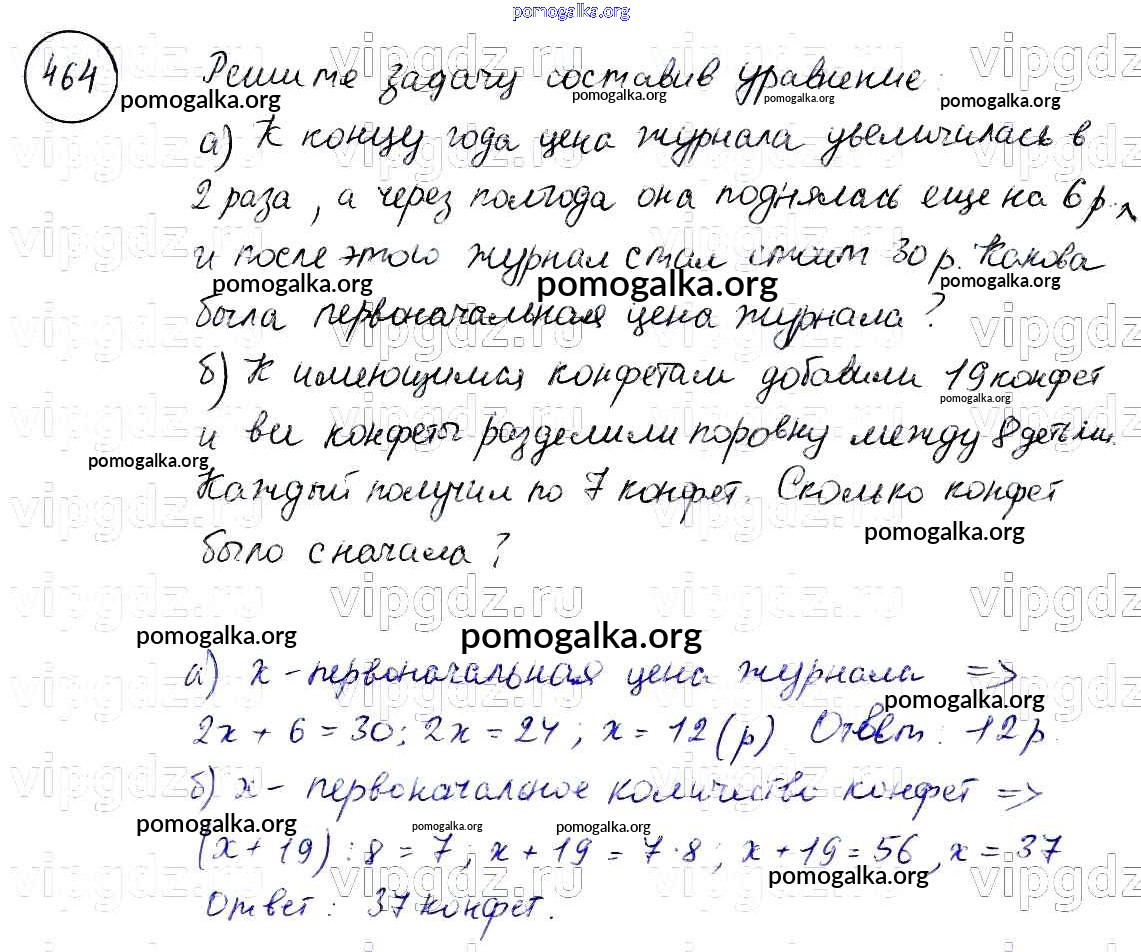 pomogalka.org
464
Решите задачу составив уравнение:
а) К концу года цена журнала увеличилась в
2 раза, а через полгода она поднялась еще на 6 р.
и после этого журнал стал стоит 30 р. Какова
была первоначальная цена журнала?
б) К имеющимся конфетам добавили 19 конфет
и все конфеты разделили поровну между 8 детьми.
Каждый получил по 7 конфет. Сколько конфет
было сначала?
а) x - первоначальная цена журнала =>
2x + 6 = 30; 2x = 24; x = 12 (р) Ответ: 12 р.
б) x - первоначальное количество конфет =>
(x + 19) : 8 = 7; x + 19 = 7·8; x + 19 = 56, x = 37
Ответ: 37 конфет.